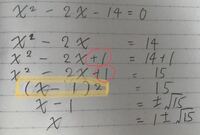 x² - 2x - 14 = 0
x² - 2x = 14
x² - 2x + 1 = 14 + 1
x² - 2x + 1 = 15
(x - 1)² = 15
x - 1 = ±√15
x = 1 ± √15